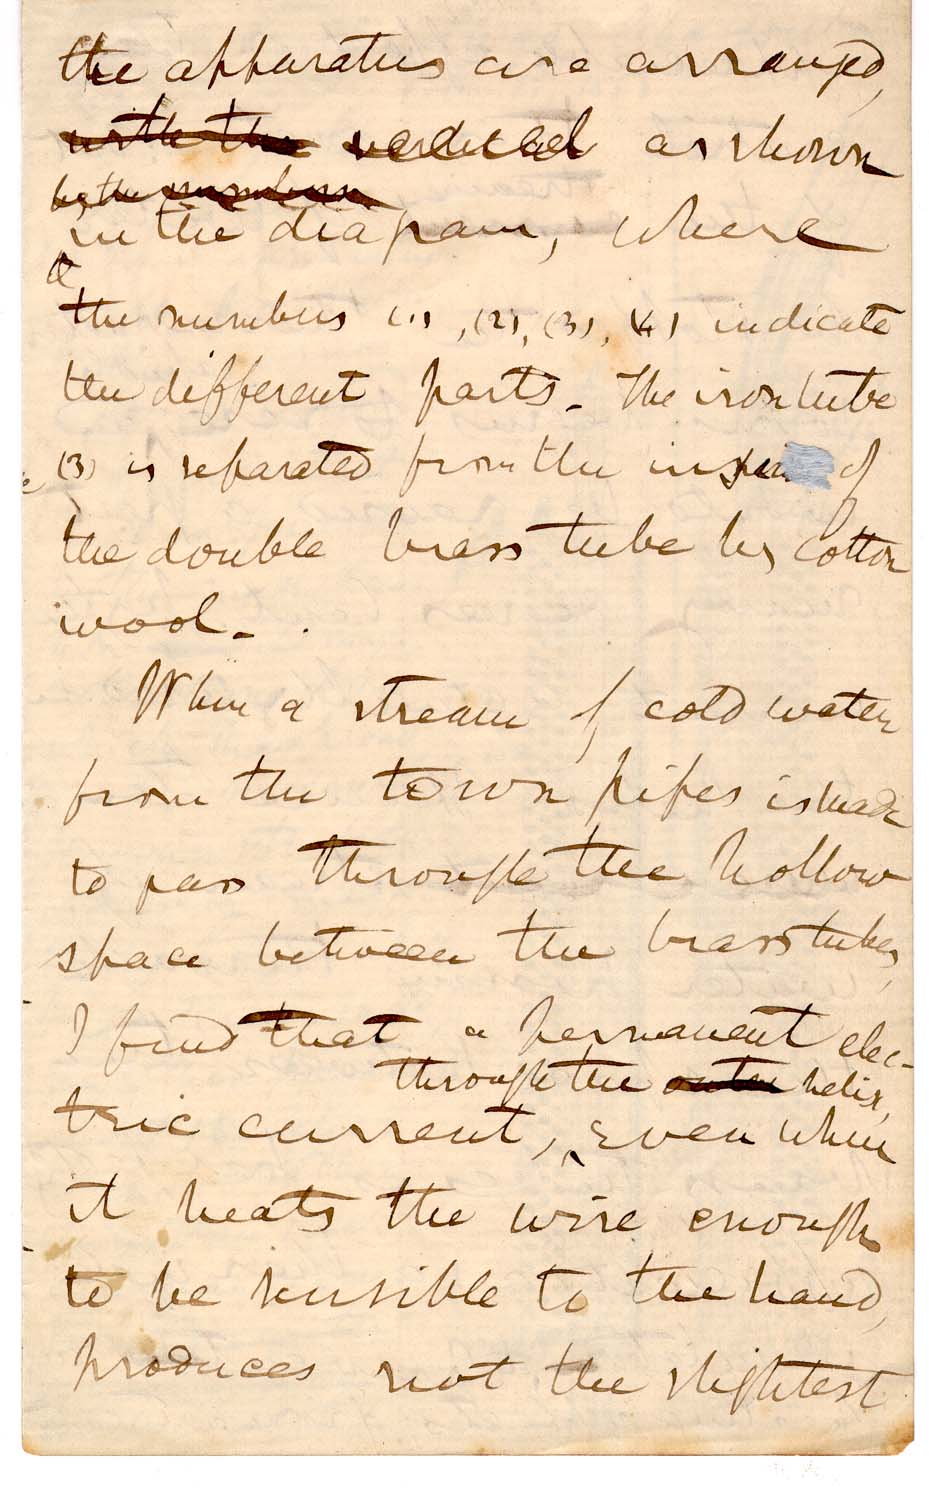 the apparatus are arranged,
with the vertical as shown
by the numbers
in the diagram, where
the numbers (1), (2), (3), (4) indicate
the different parts. The iron tube
(3) is separated from the of
the double brass tube by cotton
wool.
When a stream of cold water
from the town pipes is made
to pass through the hollow
space between the brass tubes,
I find that a permanent elec-
through the outer helix,
tric current, even when
it heats the wire enough
to be sensible to the hand,
produces not the slightest